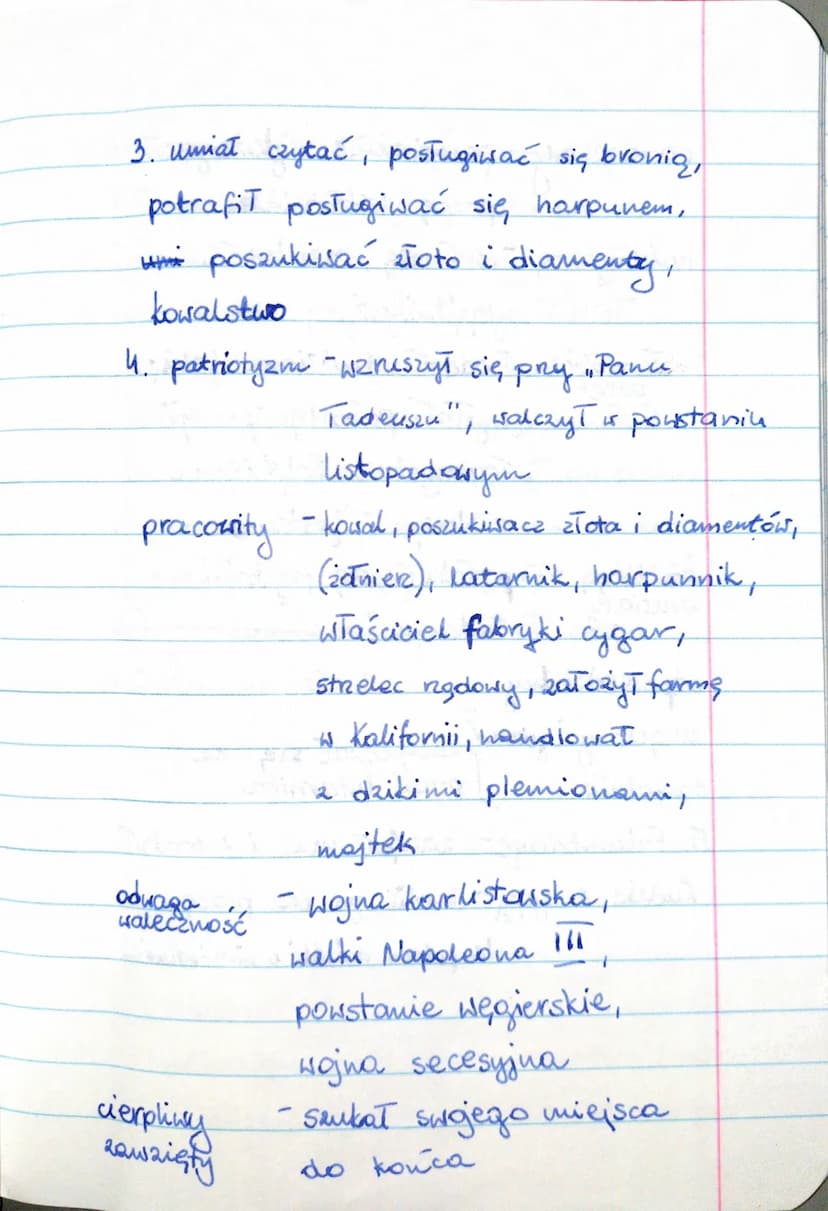 3. umiał czytać, posługiwać się bronią,
potrafił posługiwać się harpunem,
umi poszukiwać złoto i diamenty,
kowalstwo
4. patriotyzm - wzruszył się przy „Panu
Tadeuszu", walczył w powstaniu
listopadowym
pracowity - kowal, poszukiwacz złota i diamentów,
(żołnierz), latarnik, harpunnik,
właściciel fabryki cygar,
strzelec rządowy, założył farmę
w Kalifornii, handlował
z dzikimi plemionami,
majtek
odwaga - wojna karlistowska,
waleczność
walki Napoleona III,
powstanie węgierskie,
wojna secesyjna
cierpliwy - szukał swojego miejsca
zawzięty do końca